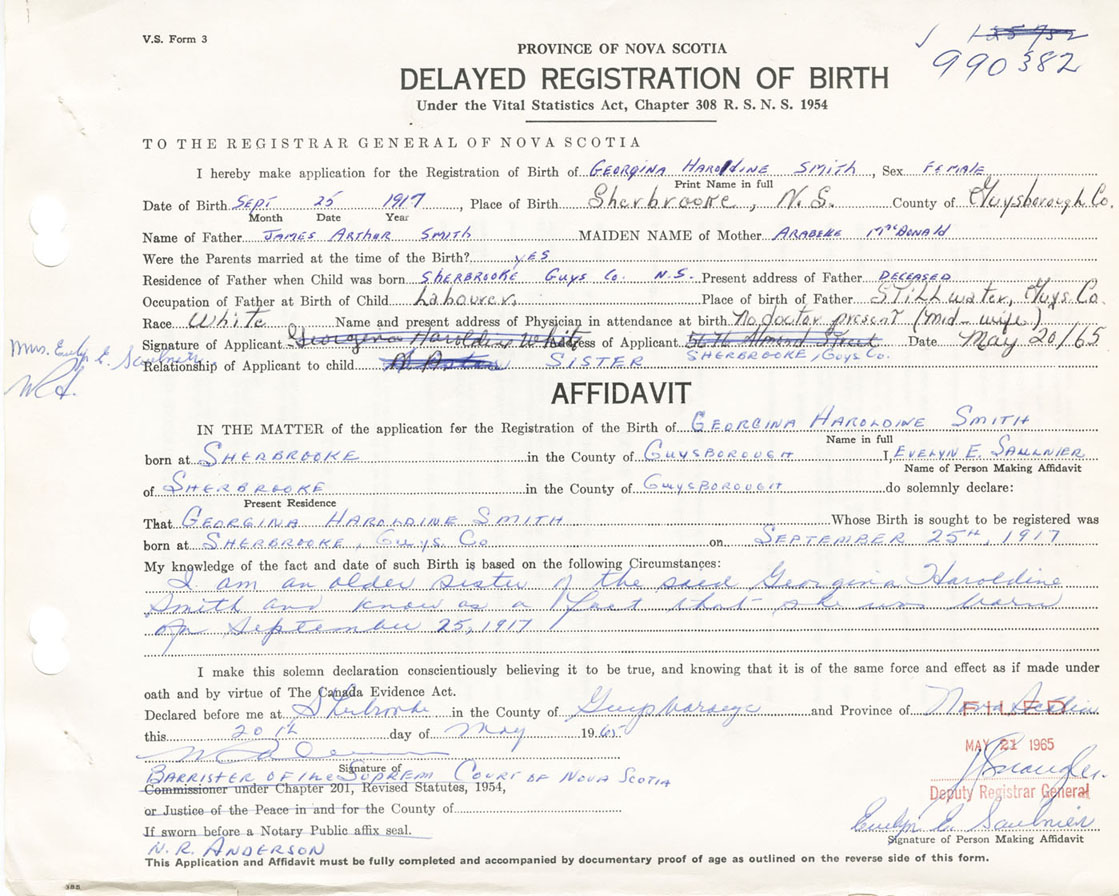 V.S. Form 3
990382
PROVINCE OF NOVA SCOTIA
DELAYED REGISTRATION OF BIRTH
Under the Vital Statistics Act, Chapter 308 R. S. N. S. 1954
TO THE REGISTRAR GENERAL OF NOVA SCOTIA
I hereby make application for the Registration of Birth of GEORGINA HAROLDINE SMITH, Sex FEMALE
Print Name in full
Date of Birth SEPT 25 1917, Place of Birth Sherbrooke, N.S. County of Guysborough Co.
Month Date Year
Name of Father JAMES ARTHUR SMITH MAIDEN NAME of Mother ARABELLE McDONALD
Were the Parents married at the time of the Birth? YES
Residence of Father when Child was born SHERBROOKE GUYS CO. N.S. Present address of Father DECEASED
Occupation of Father at Birth of Child Labourer. Place of birth of Father Stillwater, Guys Co.
Race White Name and present address of Physician in attendance at birth No doctor present (mid-wife)
Signature of Applicant Georgina Haroldine White Address of Applicant 57 Almond Street Date May 20/65
Mrs. Evelyn E. Saulnier SHERBROOKE, Guys Co.
Relationship of Applicant to child SISTER
AFFIDAVIT
IN THE MATTER of the application for the Registration of the Birth of GEORGINA HAROLDINE SMITH
Name in full
born at SHERBROOKE in the County of GUYSBOROUGH I, EVELYN E. SAULNIER
Name of Person Making Affidavit
of SHERBROOKE in the County of GUYSBOROUGH do solemnly declare:
Present Residence
That GEORGINA HAROLDINE SMITH Whose Birth is sought to be registered was
born at SHERBROOKE, Guys. Co on SEPTEMBER 25TH, 1917
My knowledge of the fact and date of such Birth is based on the following Circumstances:
I am an older sister of the said Georgina Haroldine
Smith and know as a fact that she was born
on September 25, 1917
I make this solemn declaration conscientiously believing it to be true, and knowing that it is of the same force and effect as if made under
oath and by virtue of The Canada Evidence Act.
Declared before me at Sherbrooke in the County of Guysborough and Province of Nova Scotia
FILED
this 20th day of May 1965
MAY 21 1965
Signature of
BARRISTER OF the SUPREME COURT OF NOVA SCOTIA
Commissioner under Chapter 201, Revised Statutes, 1954,
Deputy Registrar General
or Justice of the Peace in and for the County of
Evelyn E Saulnier
If sworn before a Notary Public affix seal.
Signature of Person Making Affidavit
N. R. ANDERSON
This Application and Affidavit must be fully completed and accompanied by documentary proof of age as outlined on the reverse side of this form.